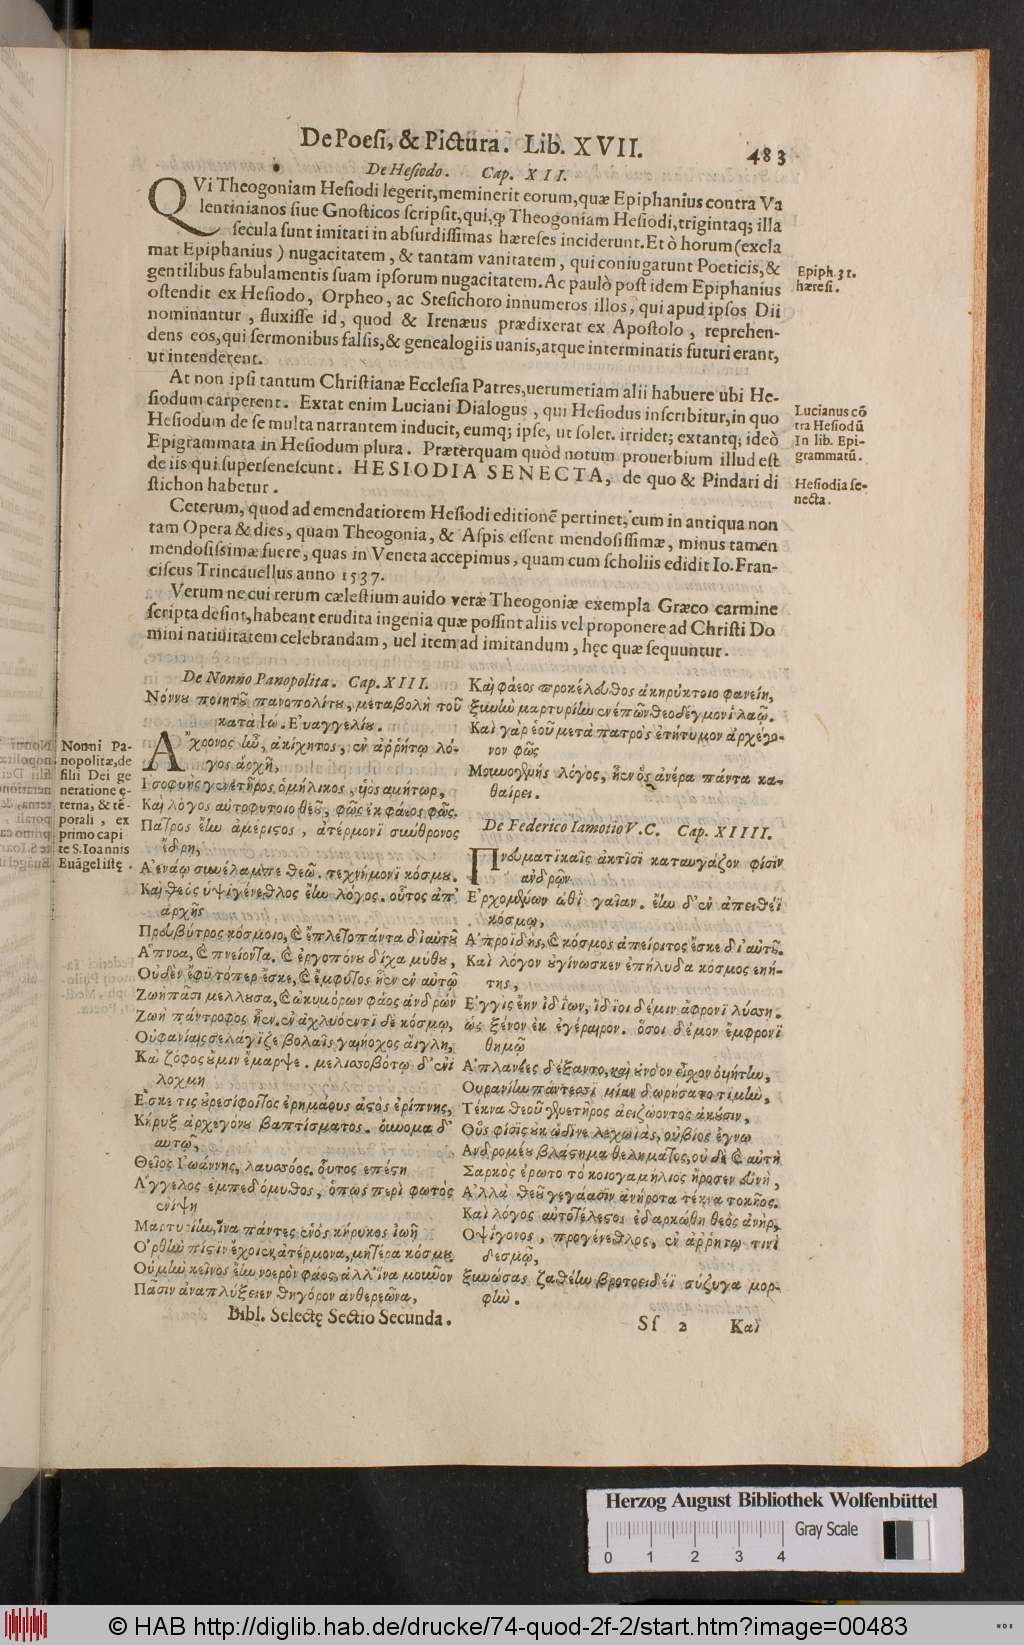 De Poesi, & Pictura. Lib. XVII.
483
De Hesiodo. Cap. XII.
QVi Theogoniam Hesiodi legerit, meminerit eorum, quæ Epiphanius contra Va
lentinianos siue Gnosticos scripsit, qui, ꝙ Theogoniam Hesiodi, trigintaq; illa
secula sunt imitati in absurdissimas hæreses inciderunt. Et ò horum (excla
mat Epiphanius) nugacitatem, & tantam vanitatem, qui coniugarunt Poeticis, &
gentilibus fabulamentis suam ipsorum nugacitatem. Ac paulò post idem Epiphanius
ostendit ex Hesiodo, Orpheo, ac Stesichoro innumeros illos, qui apud ipsos Dii
nominantur, fluxisse id, quod & Irenæus prædixerat ex Apostolo, reprehen-
dens eos, qui sermonibus falsis, & genealogiis uanis, atque interminatis futuri erant,
ut intenderent.
Epiph. 31.
hæresi.
At non ipsi tantum Christianæ Ecclesia Patres, uerumetiam alii habuere ubi He-
siodum carperent. Extat enim Luciani Dialogus, qui Hesiodus inscribitur, in quo
Hesiodum de se multa narrantem inducit, eumq; ipse, ut solet. irridet; extantq; ideò
Epigrammata in Hesiodum plura. Præterquam quòd notum prouerbium illud est
de iis qui supersenescunt. HESIODIA SENECTA, de quo & Pindari di
stichon habetur.
Lucianus cō
tra Hesiodū
In lib. Epi-
grammatū.
Hesiodia se-
necta.
Ceterum, quod ad emendatiorem Hesiodi editionē pertinet, cum in antiqua non
tam Opera & dies, quam Theogonia, & Aspis essent mendosissimæ, minus tamen
mendosissimæ fuere, quas in Veneta accepimus, quam cum scholiis edidit Io. Fran-
ciscus Trincauellus anno 1537.
Verum ne cui rerum cælestium auido veræ Theogoniæ exempla Græco carmine
scripta desint, habeant erudita ingenia quæ possint aliis vel proponere ad Christi Do
mini natiuitatem celebrandam, uel item ad imitandum, hęc quæ sequuntur.
De Nonno Panopolita. Cap. XIII.
Νόννου ποιητοῦ πανοπολίτου, μεταβολὴ τοῦ
κατὰ Ἰω. Εὐαγγελίου.
Nonni Pa-
nopolitæ, de
filii Dei ge
neratione ę-
terna, & tē-
porali, ex
primo capi
te S. Ioannis
Euāgelistę.
Ἄχρονος ἦν, ἀκίχητος, ἐν ἀῤῥήτῳ λό-
γος ἀρχῇ,
Ἰσοφυὴς γενετῆρος ὁμήλικος, υἱὸς ἀμήτωρ,
Καὶ λόγος αὐτοφύτοιο θεοῦ, φῶς ἐκ φάεος φῶς.
Πατρὸς ἔην ἀμέριστος, ἀτέρμονι σύνθρονος
ἕδρῃ,
Ἀενάῳ συνέλαμπε θεῷ. τεχνήμονι κόσμου.
Καὶ θεὸς ὑψιγένεθλος ἔην λόγος. οὗτος ἀπ'
ἀρχῆς
Πρεσβύτερος κόσμοιο, & ἔπλετο πάντα δι' αὐτοῦ
Ἄπνοα, & πνείοντα. & ἐργοπόνου δίχα μύθου,
Οὐδὲν ἔφυ τόπερ ἔσκε, & ἔμφυτος ἦεν ἐν αὐτῷ
Ζωὴ πᾶσι μέλλουσα, & ὠκυμόρων φάος ἀνδρῶν
Ζωὴ πάντροφος ἦεν. ἐν ἀχλυόεντι δὲ κόσμῳ,
Οὐρανίαις σελάγιζε βολαῖς γαιήοχος αἴγλη,
Καὶ ζόφος ὔμιν ἔμαρψε. μελισσοβότῳ δ' ἐνὶ
λόχμῃ
Ἔσκε τις οὐρεσίφοιτος ἐρημάδος ἀστὸς ἐρίπνης,
Κήρυξ ἀρχεγόνου βαπτίσματος. οὔνομα δ'
αὐτῷ,
Θεῖος Ἰωάννης, λαοσσόος. οὗτος ἐπέστη
Ἄγγελος ἐμπεδόμυθος, ὅπως περὶ φωτὸς
ἐνίψῃ
Μαρτυρίην, ἵνα πάντες ἑνὸς κήρυκος ἰωῇ
Ὀρθὴν πίστιν ἔχοιεν ἀτέρμονα, μητέρα κόσμου
Οὐ μὴν κεῖνος ἔην νοερὸν φάος, ἀλλ' ἵνα μοῦνον
Πᾶσιν ἀναπλύξειεν θηγόρον ἀνθερεῶνα,
Καὶ φάεος προκέλευθος ἀκηρύκτοιο φανείη,
ξυνὴν μαρτυρίην ἐνέπων θεοδέγμονι λαῷ.
Καὶ γὰρ ἑοῦ μετὰ πατρὸς ἐτήτυμον ἀρχέγο-
νον φῶς
Μουνογενὴς λόγος, ἦεν ὃς ἀνέρα πάντα κα-
θαίρει.
De Federico Iamotio V. C. Cap. XIIII.
Πνευματικαῖς ἀκτῖσι καταυγάζον φύσιν
ἀνδρῶν
Ἐρχομένων ὠθὶ γαῖαν. ἔην δ' ἐν ἀπειθέϊ
κόσμῳ,
Ἀπροϊδὴς, & κόσμος ἀπείριτος ἔσκε δι' αὐτοῦ.
Καὶ λόγον οὐγίνωσκεν ἐπήλυδα κόσμος ἐνή-
της,
Ἐγγὺς ἔην ἰδίων, ἴδιοι δέ μιν ἄφρονι λύσσῃ.
ὡς ξένον ἐκ ἐγέραιρον. ὅσοι δέ μον ἔμφρονι
θημῷ
Ἀπλανέες δέξαντο, καὶ οὐ νόον εἶχον ἀήτην,
Οὐρανίην πάντεσσι μίαν δωρήσατο τιμὴν,
Τέκνα θεοῦ γενετῆρος ἀειζώοντος ἀκούειν,
Οὓς φύσις οὐκ ὤδινε λεχωϊὰς, οὐ βίος ἔγνω
Ἀνδρομέου βλάστημα θελήματος, οὐ δὲ & αὐτὴ
Σαρκὸς ἔρωτο τόκοιο γαμήλιος ἤροσεν εὐνὴ,
Ἀλλὰ θεοῦ γεγάασιν ἀνήροτα τέκνα τοκῆος.
Καὶ λόγος αὐτοτέλεστος ἐσαρκώθη θεὸς ἀνὴρ,
Ὀψίγονος, προγένεθλος, ἐν ἀῤῥήτῳ τινὶ
δεσμῷ,
ξυνώσας ζαθέην βροτοειδέϊ σύζυγα μορ-
φὴν.
Bibl. Selectę Sectio Secunda.
Sſ 2
Καὶ
Herzog August Bibliothek Wolfenbüttel
Gray Scale
0 1 2 3 4
© HAB http://diglib.hab.de/drucke/74-quod-2f-2/start.htm?image=00483